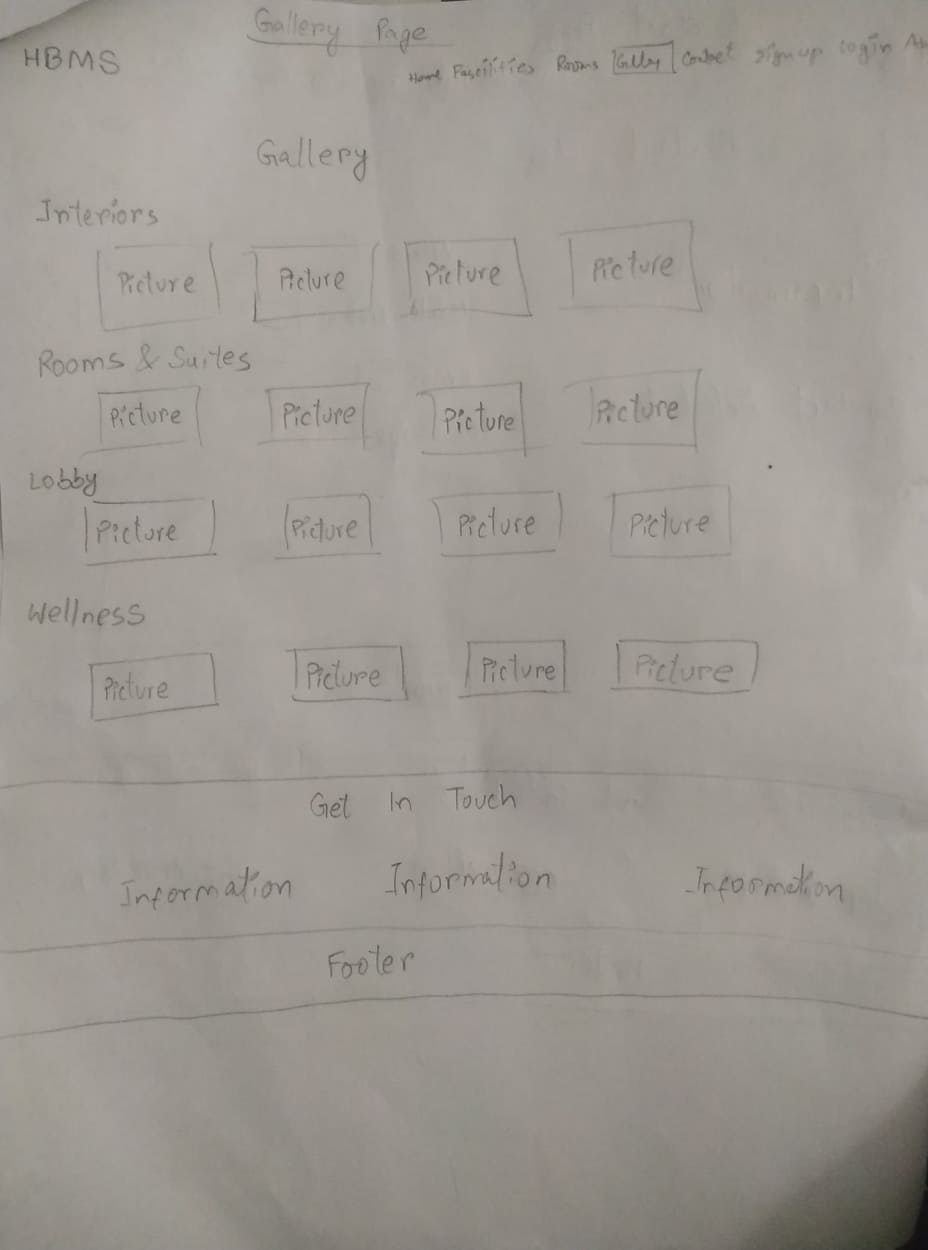 Gallery Page
HBMS
Home Faseilities Rooms Gallery Contact sign up login
Gallery
Interiors
Picture Picture Picture Picture
Rooms & Suites
Picture Picture Picture Picture
Lobby
Picture Picture Picture Picture
Wellness
Picture Picture Picture Picture
Get In Touch
Information Information Information
Footer